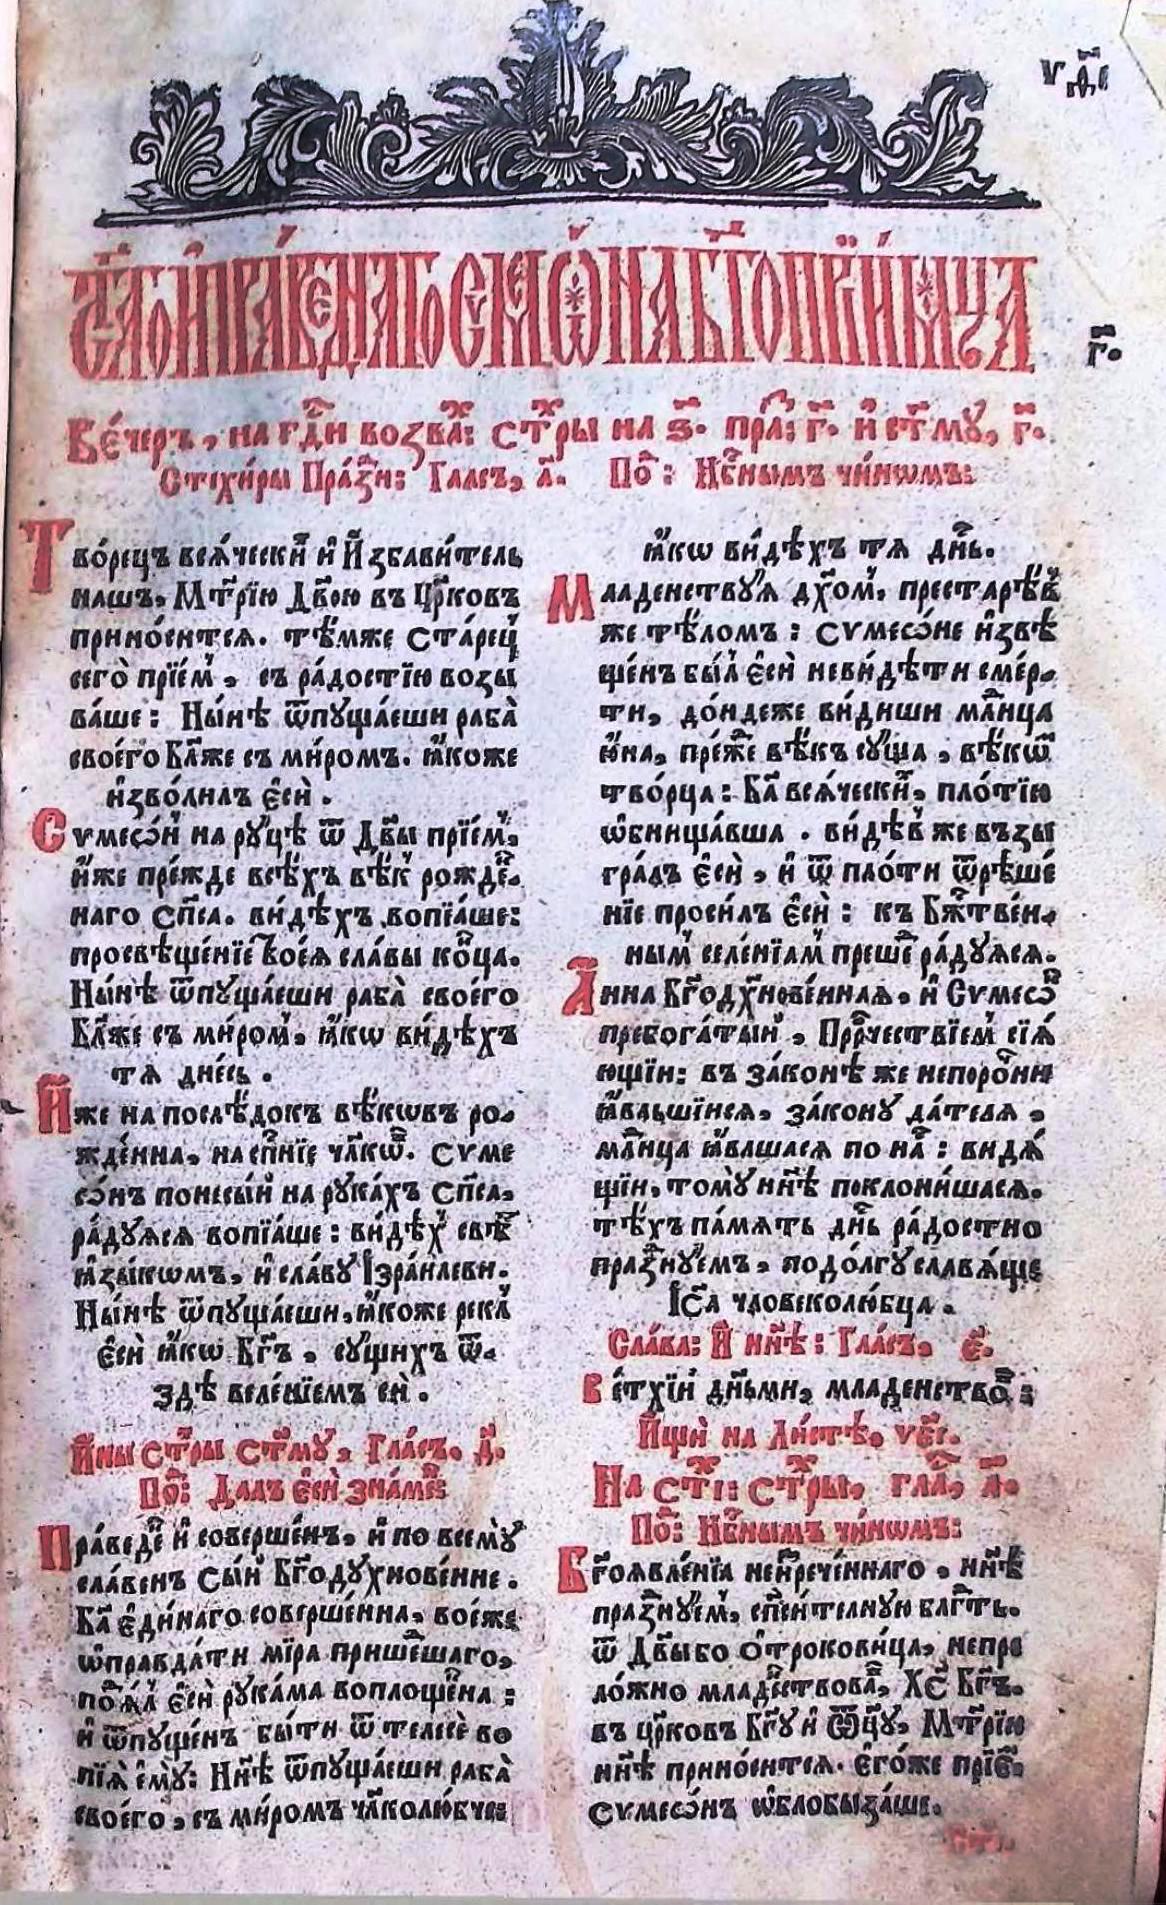 ѵ҃дı
СТ҃АГѠ И҆ ПРА́ВЕДНАГѠ СѴМЕѠ́НА БГ҃ОПРІИ́МЦА
г҃.
Ве́черъ, на гдⷭ҇и возваⷯ: стⷯры на ѕ҃. праⷥ: г҃. и҆ ст҃мꙋ, г҃.
Стїхи́ры Пра́зⷣни: Гласъ, а҃. Поⷣ: Нбⷭ҇нымъ чи́нѡмъ:
Тво́рецъ вся́ческиⷯ и҆ И҆збави́тель
нашъ, Мт҃рїю Дв҃ою въ цр҃ковъ
прино́сится. тѣ́мже ста́рецъ
сего̀ прїе́мъ, съ ра́достїю возы
ва́ше: Ны́нѣ ѿпꙋща́еши раба̀
своего̀ Бл҃же съ ми́ромъ. ꙗ҆́коже
и҆зво́лилъ є҆сѝ.
Сѵмеѡ́нъ на рꙋцѣ ѿ Дв҃ы прїе́мъ,
и҆́же пре́жде всѣ́хъ вѣ́къ рожде́н.
наго Сп҃са. ви́дѣхъ вопїа́ше:
просвѣще́нїе твоея̀ сла́вы ко́нца.
Ны́нѣ ѿпꙋща́еши раба̀ своего
Бл҃же съ ми́ромъ, ꙗ҆́кѡ ви́дѣхъ
тѧ дне́сь.
И҆́же на послѣ́докъ вѣ́кѡвъ ро.
жде́нна, на сп҃нїе чл҃кѡⷡ. Сѵме
ѡ́нъ понесы́й на рꙋка́хъ Сп҃са,
ра́дꙋяся вопїа́ше: ви́дѣхъ свѣⷮ
ꙗ҆зы́кѡмъ, и҆ сла́вꙋ І҆зра́илеви.
Ны́нѣ ѿпꙋща́еши, ꙗ҆́коже реклъ
є҆сѝ ꙗ҆́кѡ Бг҃ъ, сꙋ́щихъ ѿ.
здѣ веле́нїемъ сѝ.
И҆́ны стⷯры ст҃мꙋ, Гла́съ. д҃.
Поⷣ: Далъ є҆сѝ зна́меⷩ:
Пра́ведеⷩ и҆ соверше́нъ, и҆ по всемꙋ̀
сла́венъ сы́й Бг҃одꙋхнове́нне.
Бг҃а є҆ди́наго соверше́нна, во е́же
ѡ҆правда́ти мїра прише́дшаго,
поⷣꙗ́лъ є҆сѝ рꙋка́ма воплоще́нна:
и҆ ѿпꙋще́нъ бы́ти ѿ телесѐ во
пїя̀ є҆мꙋ̀: Нн҃ѣ ѿпꙋща́еши раба̀
своего̀, съ ми́ромъ чл҃колю́бче:
ꙗ҆́кѡ ви́дѣхъ тѧ дн҃ь.
Младе́нствꙋѧ дх҃омъ, престарѣ́въ
же тѣ́ломъ: Сѵмеѡ́не и҆звѣ
ще́нъ былъ є҆сѝ не ви́дѣти сме́р.
ти, до́ндеже ви́диши млⷣнца
ю҆́на, пре́жⷣе вѣ́къ сꙋ́ща, вѣ́кѡⷡ
тво́рца: Бг҃а вся́ческиⷯ, пло́тїю
ѡ҆бнища́вша. ви́дѣвъ же възы
гра́лъ є҆сѝ, и҆ ѿ пло́ти ѿрѣше́
нїе проси́лъ є҆сѝ: къ Бжⷭ҇твен.
нымъ селе́нїамъ преше́ⷣ ра́дꙋяся.
А҆́нна Бг҃одꙋхнове́нная, и҆ Сѵмеѡⷩ
пребога́тый, Прⷪ҇рчествїемъ сїя́
ющїи: въ зако́нѣ же непоро́чнⷩи
ꙗ҆́вльшїися, зако́нꙋ да́теля,
млⷣнца ꙗ҆́влшася по наⷭ: видя́
щїи, томꙋ̀ нн҃ѣ поклони́шася.
тѣ́хъ па́мять дн҃ь ра́достно
пра́зⷣнꙋемъ, по до́лгꙋ славя́ще
І҆с҃а человеколю́бца.
Сла́ва: И҆ нн҃ѣ: Гла́съ, е҃.
Ве́тхїй дн҃ьми, младе́нствоⷡ:
И҆щѝ на ли́стѣ,
На стⷯі: стⷯры, глаⷭ, а҃.
Поⷣ: Нбⷭ҇нымъ чи́нѡмъ:
Бг҃оявле́нїа неи҆зрече́ннаго, нн҃ѣ
пра́зⷣнꙋемъ, сп҃си́телнꙋю блгⷣть.
ѿ Дв҃ы бо ѻ҆трокови́ца, непре
ло́жно младⷭ҇нствоваⷡ, Хс҃ Бг҃ъ.
въ цр҃ковъ Бг҃ꙋ и҆ Ѿц҃ꙋ, Мт҃рїю
нн҃ѣ прино́сится. є҆го́же прїеⷨ:
Сѵмеѡ́нъ ѡ҆блобыза́ше.